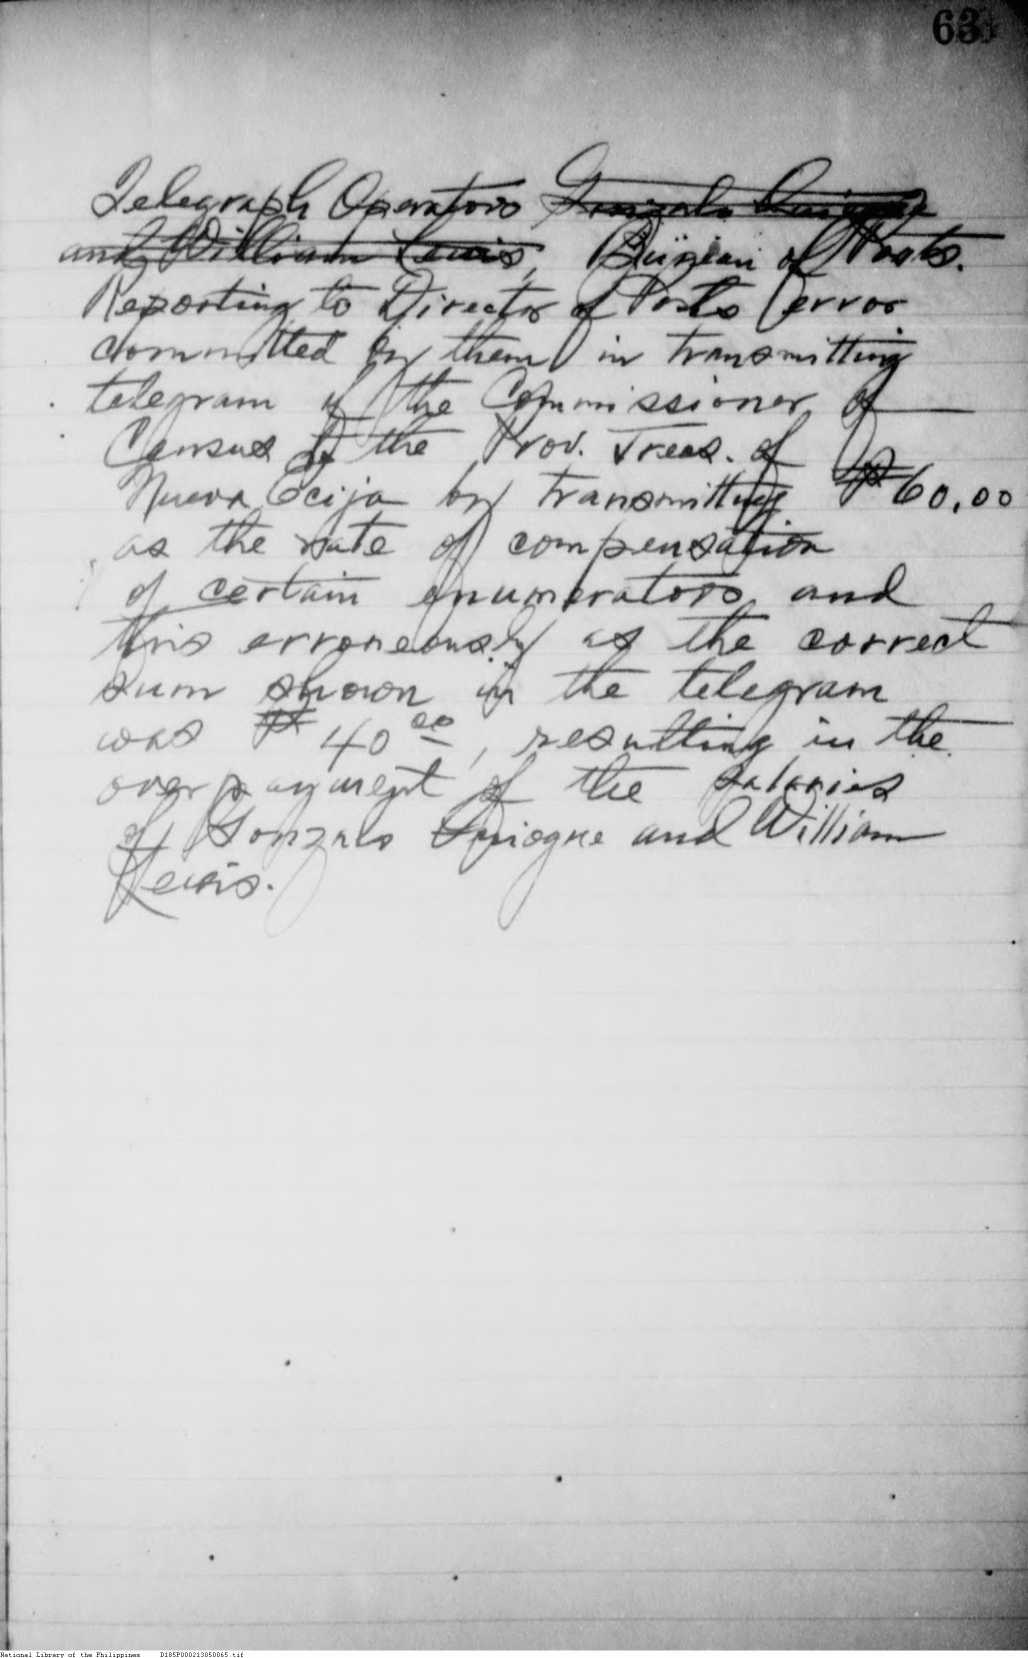 63
Telegraph Operators Gonzalo Quiogue
and William Lewis, Bureau of Posts.
Reporting to Director of Posts error
committed by them in transmitting
telegram of the Commissioner of
Census to the Prov. Treas. of
Nueva Ecija by transmitting ₱60.00
as the rate of compensation
of certain enumerators and
this erroneously as the correct
sum shown in the telegram
was ₱40.00, resulting in the
overpayment of the salaries
of Gonzalo Quiogue and William
Lewis.
National Library of the Philippines D185P000213050065.tif